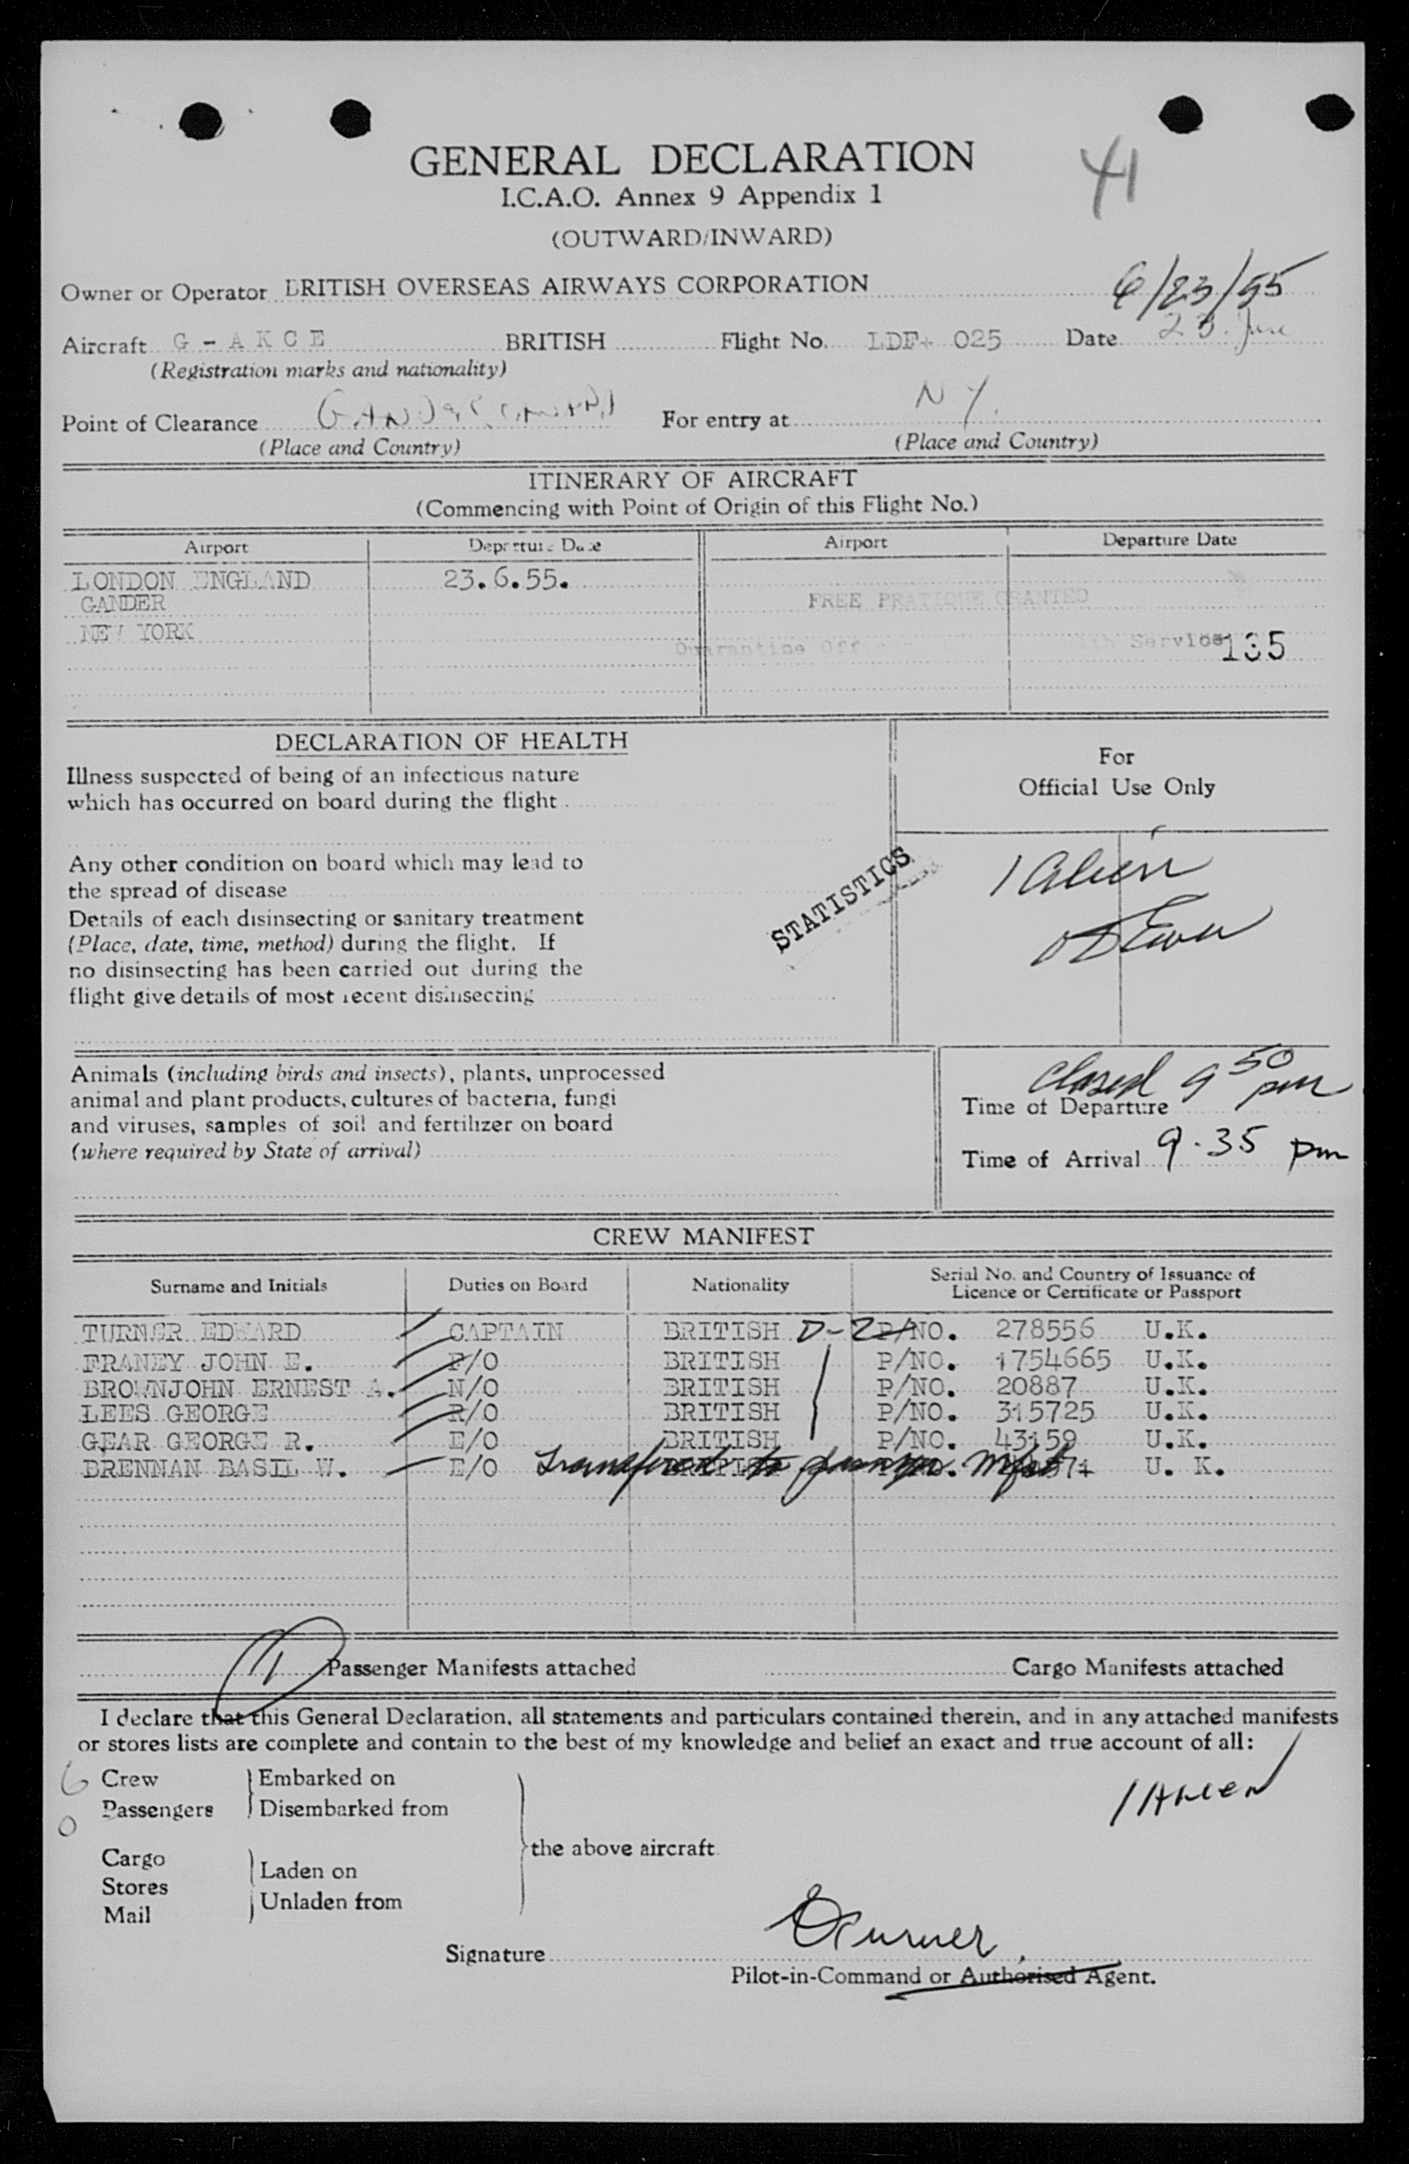 GENERAL DECLARATION
41
I.C.A.O. Annex 9 Appendix 1
(OUTWARD/INWARD)
6/23/55
Owner or Operator BRITISH OVERSEAS AIRWAYS CORPORATION
Aircraft G - A K C E BRITISH Flight No. LDF 025 Date 23 June
(Registration marks and nationality)
Point of Clearance GANDER For entry at NY.
(Place and Country) (Place and Country)
ITINERARY OF AIRCRAFT
(Commencing with Point of Origin of this Flight No.)
Airport Departure Date Airport Departure Date
LONDON ENGLAND 23.6.55.
GANDER FREE PRATIQUE GRANTED
NEW YORK
Quarantine Service 135
DECLARATION OF HEALTH
For
Official Use Only
Illness suspected of being of an infectious nature
which has occurred on board during the flight
Any other condition on board which may lead to
the spread of disease
1 Alien
STATISTICS
Details of each disinsecting or sanitary treatment
(Place, date, time, method) during the flight. If
no disinsecting has been carried out during the
flight give details of most recent disinsecting
Animals (including birds and insects), plants, unprocessed
animal and plant products, cultures of bacteria, fungi
and viruses, samples of soil and fertilizer on board
(where required by State of arrival)
closed 9 50 pm
Time of Departure
Time of Arrival 9.35 pm
CREW MANIFEST
Surname and Initials Duties on Board Nationality Serial No. and Country of Issuance of Licence or Certificate or Passport
TURNER EDWARD CAPTAIN BRITISH D-2 P/NO. 278556 U.K.
FRANEY JOHN E. F/O BRITISH P/NO. 1754665 U.K.
BROWNJOHN ERNEST A. N/O BRITISH P/NO. 20887 U.K.
LEES GEORGE R/O BRITISH P/NO. 315725 U.K.
GEAR GEORGE R. E/O BRITISH P/NO. 43159 U.K.
BRENNAN BASIL W. E/O Transfered to U. K.
11 Passenger Manifests attached Cargo Manifests attached
I declare that this General Declaration, all statements and particulars contained therein, and in any attached manifests
or stores lists are complete and contain to the best of my knowledge and belief an exact and true account of all:
6 Crew Embarked on
0 Passengers Disembarked from
1 ALIEN
the above aircraft
Cargo
Stores
Mail
Laden on
Unladen from
Signature E Turner
Pilot-in-Command or Authorised Agent.